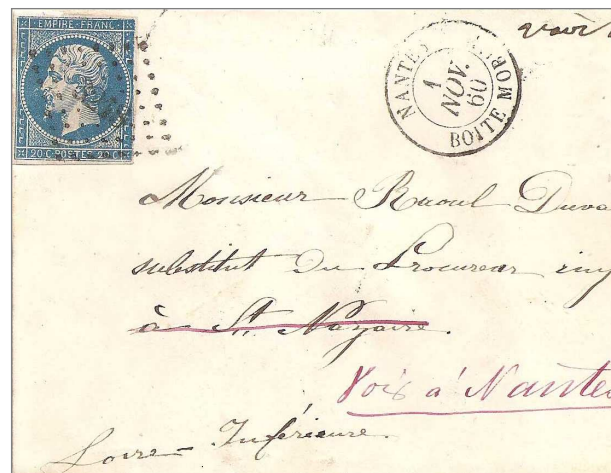 EMPIRE FRANC
20 C POSTES 20 C
voir
NANTES
1
NOV.
60
BOITE MOB
Monsieur Raoul Duva
substitut du Procureur imp
à St. Nazaire.
Voir à Nantes
Loire-Inférieure.